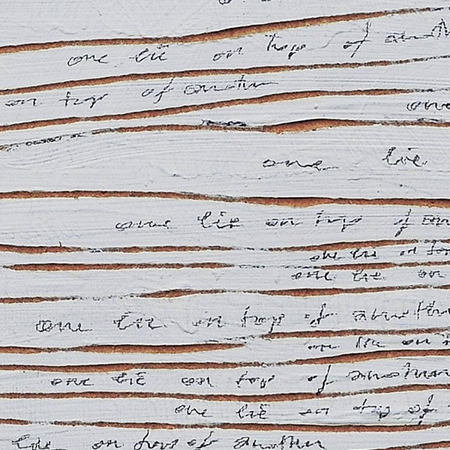 one lie on top of anoth
on top of another
one
one lie
one lie on top of an
one lie on top
one lie on
one lie on top of another
on lie on
one lie on top of another
one lie on top of
lie on top of another